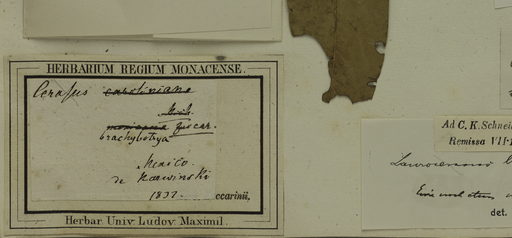 HERBARIUM REGIUM MONACENSE.
Cerasus caroliniana
Mich.
mexicana Zuccar.
brachybotrya
Mexico
de Karwinski
1837.
ccarinii,
Herbar. Univ. Ludov. Maximil.
Ad C. K. Schnei
Remissa VII-1
Laurocerasus b
det.